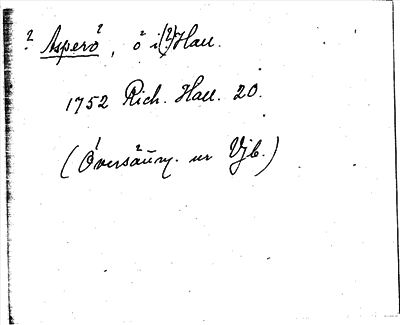 ? Asperö, ö i (?) Hall.
1752 Rich. Hall. 20.
(Översänn. ur Vjb.)